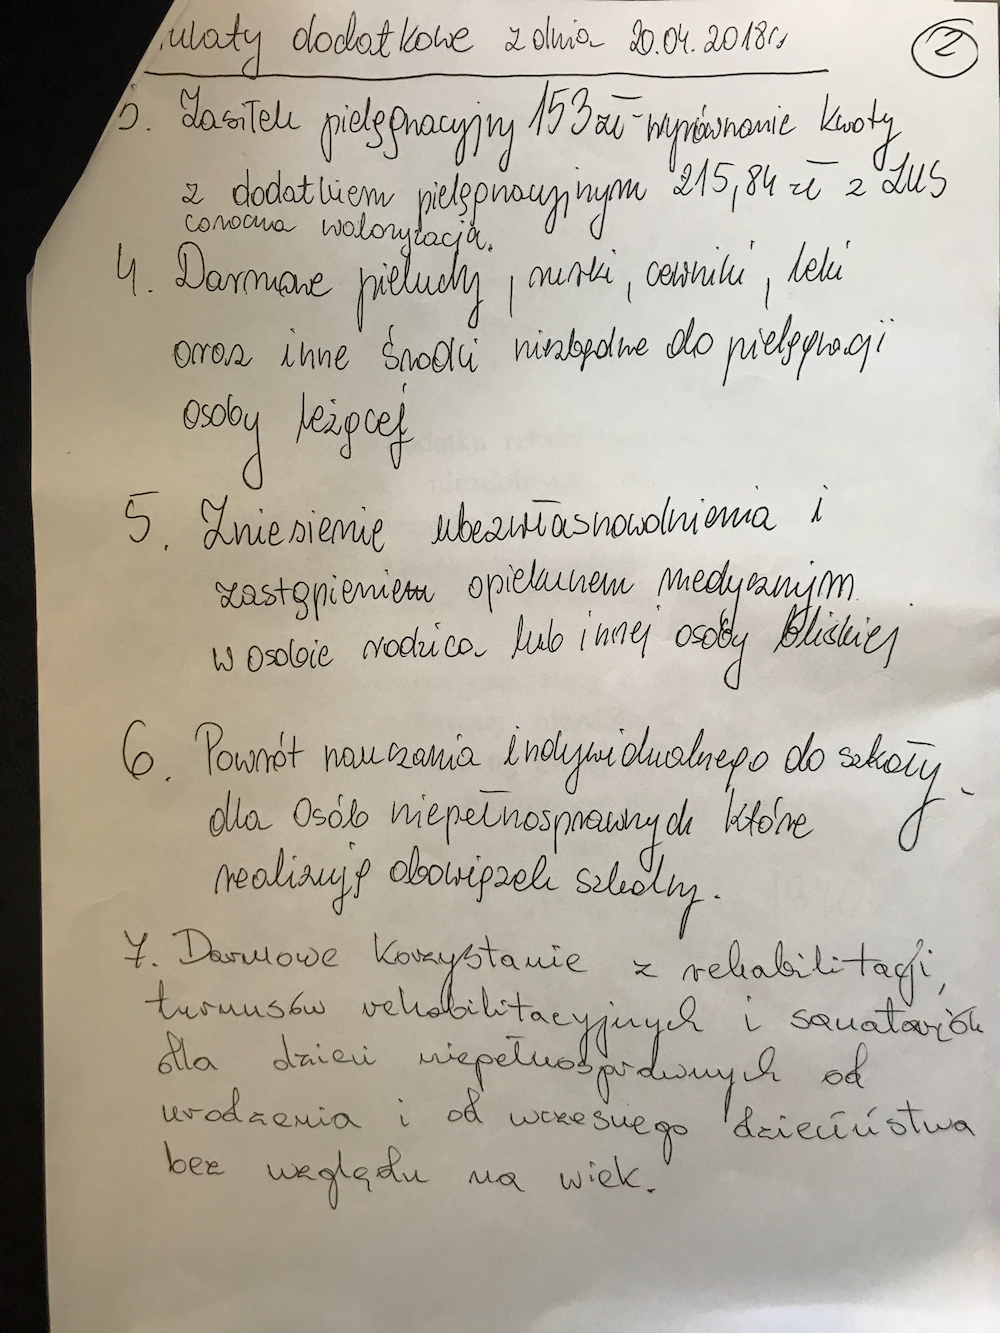 ulaty dodatkowe z dnia 20.04.2018r
2
3. Zasiłek pielęgnacyjny 153 zł - wyrównanie kwoty
z dodatkiem pielęgnacyjnym 215,84 zł z ZUS
coroczna waloryzacja.
4. Darmowe pieluchy, rurki, cewniki, leki
oraz inne środki niezbędne do pielęgnacji
osoby leżącej
5. Zniesienie ubezwłasnowolnienia i
zastąpieniem opiekunem medycznym
w osobie rodzica lub innej osoby bliskiej
6. Powrót nauczania indywidualnego do szkoły
dla osób niepełnosprawnych które
realizują obowiązek szkolny.
7. Darmowe korzystanie z rehabilitacji,
turnusów rehabilitacyjnych i sanatoriów
dla dzieci niepełnosprawnych od
urodzenia i od wczesnego dzieciństwa
bez względu na wiek.